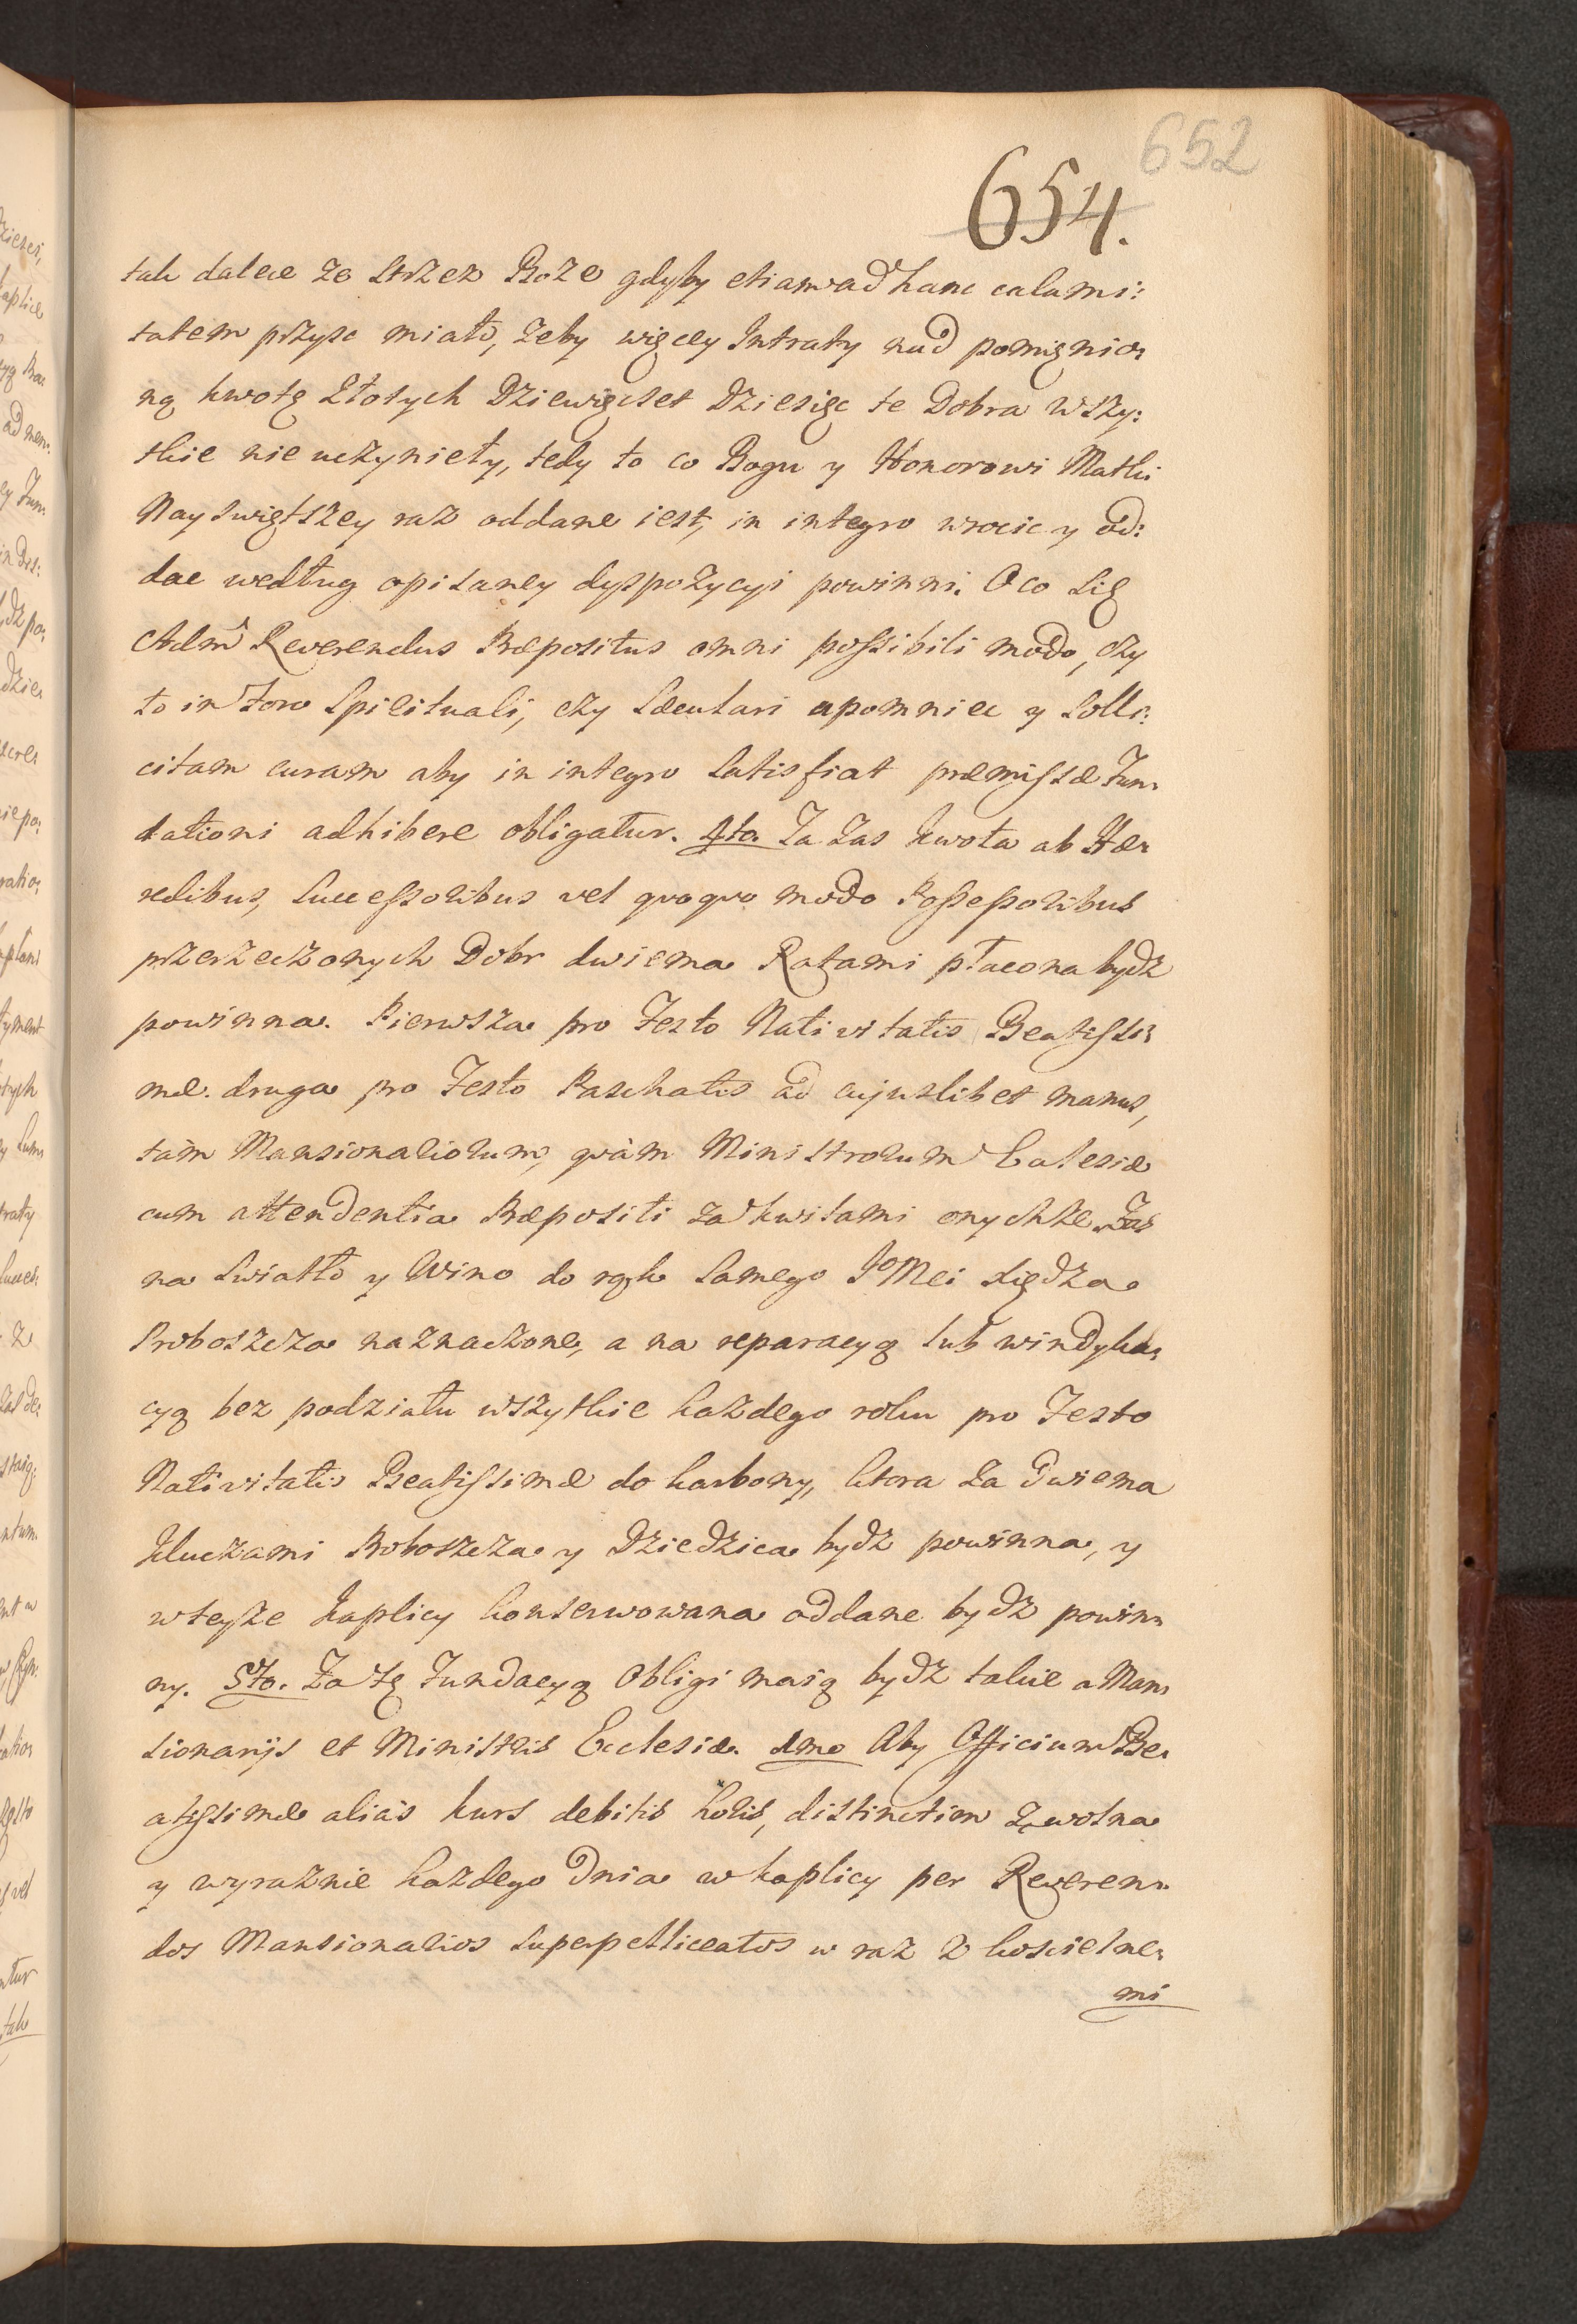 652
654.
tak dalece ze strzez Boze gdyby etiam ad hanc calami:
tatem przysc miało, zeby więcey Intraty nad pomięnio,
ną kwotę Złotych Dziewięcset Dziesięc te Dobra wszy:
stkie nie uczyniéły, tedy to co Bogu y Honorowi Matki
Nayswiętszey raz oddane iest, in integro wrocic y od:
dac według opisaney dyspozycyi powinni. O co się
Adm Reverendus Præpositus omni possibili modo, czy
to in Foro Spirituali, czy Sæculari upomniec y solli:
citam curam aby in integro satisfiat præmissæ Fun,
dationi adhibere obligatur. 4to. Ta zas kwota ab Hæ,
redibus, Successoribus vel quoquo modo Possessoribus
przerzeczonych Dobr dwiema Ratami płacona bydz
powinna. Pierwsza pro Festo Nativitatis Beatissi,
mæ. druga pro Festo Paschatis ad cujuslibet manus,
tàm Mansionariorum, quàm Ministrorum Ecclesiæ
cum attendentia Præpositi za kwitami onychze. Zas
na swiatło y Wino do rąk samego JoMci Xiędza
Proboszcza naznaczone, a na reparacyą lub windyka,
cyą bez podziału wszytkie kazdego roku pro Festo
Nativitatis Beatissimæ do karbony, ktora za dwiema
Kluczami Proboszcza y Dziedzica bydz powinna, y
w teyze Kaplicy konserwowana oddane bydz powin,
ny. 5to. Za tę Fundacyą obligi maią bydz takie a Man,
sionarijs et Ministris Ecclesiæ. 1mo Aby Officium Be,
atissimæ aliàs kurs debitis horis, distinctim zwolna
y wyraznie kazdego dnia w kaplicy per Reveren,
dos Mansionarios superpelliceatos w raz z koscielne,
mi